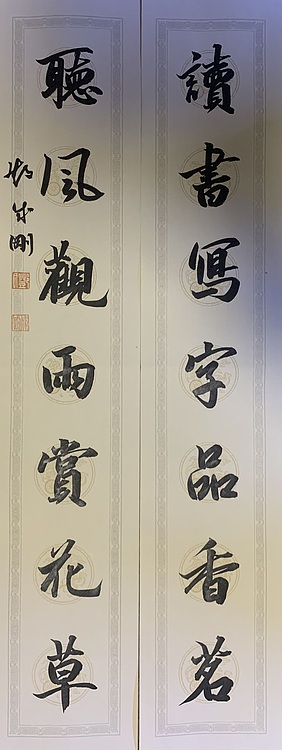 讀書寫字品香茗
聽風觀雨賞花草
成剛